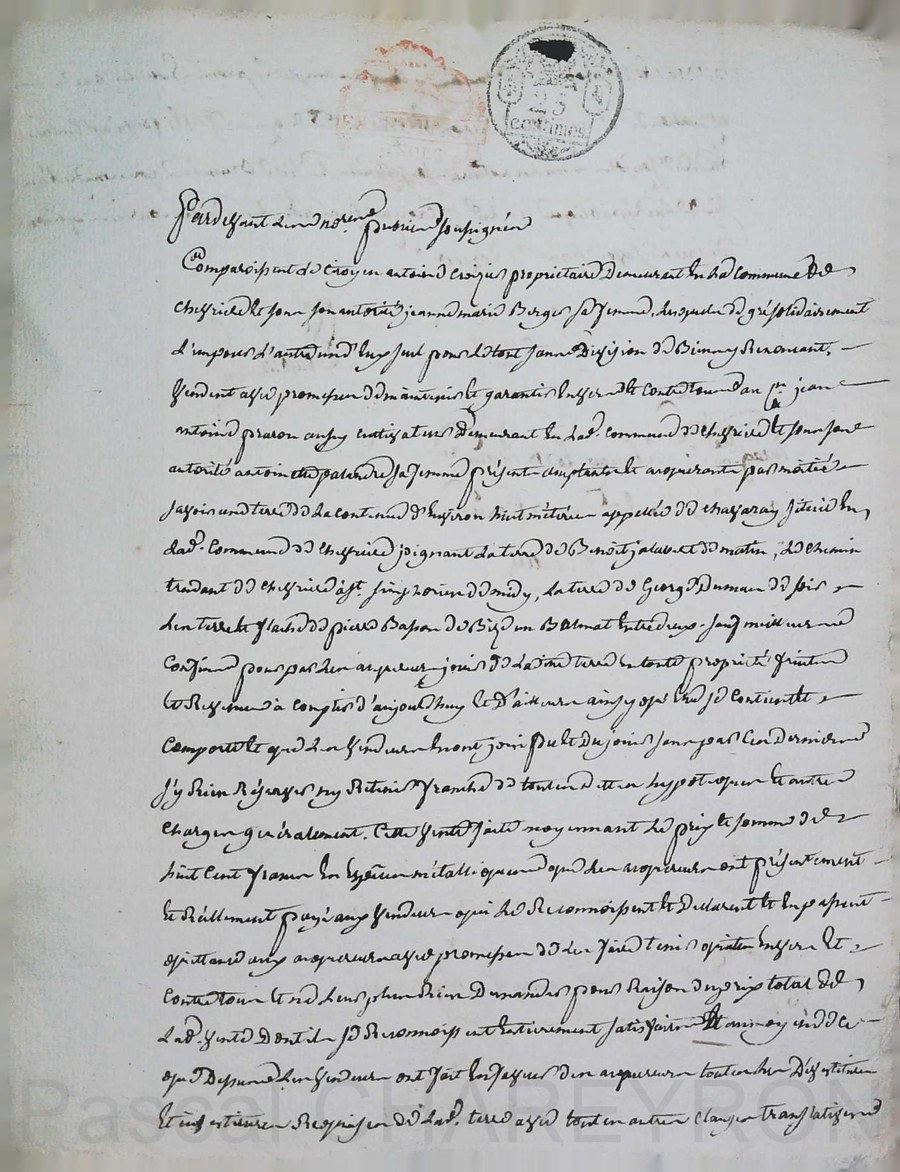 25
centimes
Pardevant les no.res publics soussignés
Comparoissent le citoyen antoine croizier propriétaire demeurant en la commune de
chevrieres et sous son autorité jeanne marie Berger sa femme, lesquels de gré solidairement
l'un pour l'autre un d'eux seul pour le tout sans division de Biens y renonçant,
vendent avec promesse de maintenir et garantir envers et contre tous au c.en jean
antoine praron aussy cultivateur demeurant en lad. commune de chevrieres et sous son
autorité antoinette palandre sa femme présents acceptants et acquerants par moitié
savoir une terre de la contenue d'environ huit méterées appellée de chavaray située en
lad. commune de chevrieres joignant la terre de Benoit de matin, le chemin
tendant de chevrieres à st. simphorien de midy, la terre de George Dumas de soir
les terre et flache de pierre Bason de Bize un Balmat entredeux sauf meilleurs
confins pour par les acquereurs jouir de laditte terre en toute propriété fruits
et revenus à compter d'aujourd'huy et d'ailleurs ainsy que le tout se contient et
comporte et que les vendeurs en ont joui pu et du jouir sans par ces derniers
s'y rien réserver ny retenir franche de toutes dettes hypoteques et autres
charges généralement. Cette vente faite moyennant le prix et somme de
huit cent francs en espèces métalliques que les acquereurs ont présentement
et réellement payé aux vendeurs qui le reconnoissent et declarent et en passent
quittance aux acquereurs avec promesse de les faire tenir quittes envers et
contre tous et ne leurs plus rien demander pour raison du prix total de
lad. vente dont ils se reconnoissent entierement satisfaits Et au moyen de ce
que dessus les vendeurs ont fait en faveur des acquereurs toutes les devestitures
et investitures requises de lad. terre avec toutes autres clauses translatives
Pascal CHAREYRON